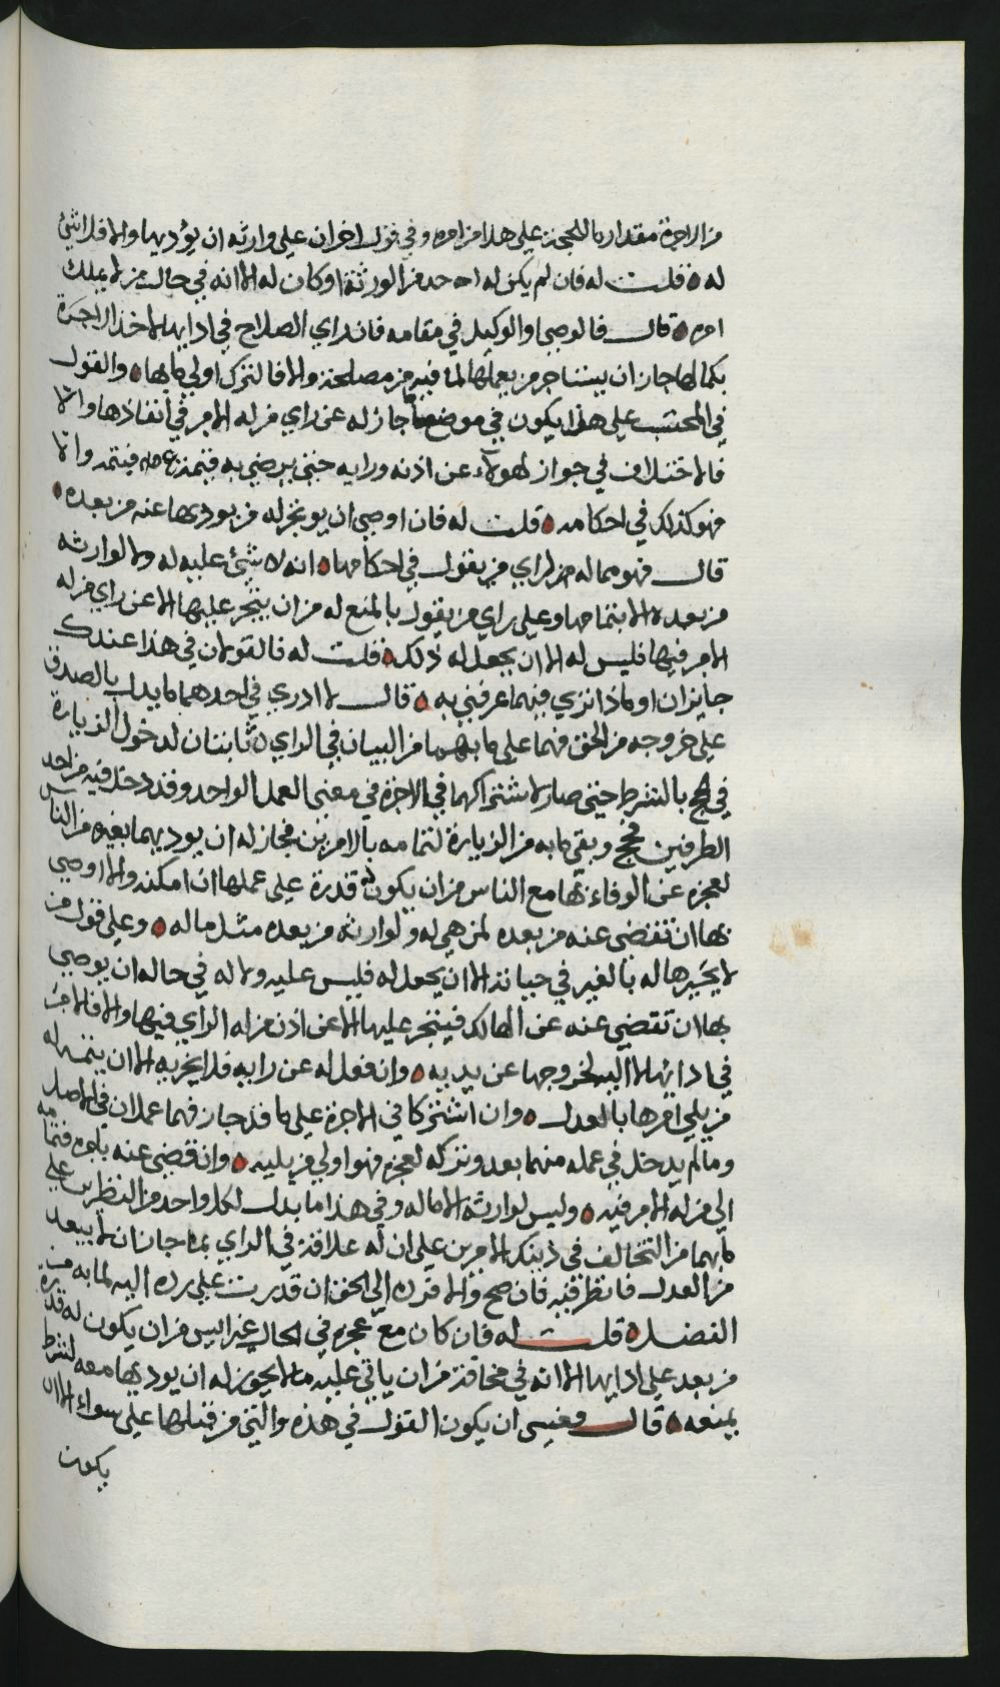 من الاجرة مقدار ما للحجة على هذا من امره وفي قول اخر ان على وارثه ان يؤديها والا فلا شيء
له ه قلت له فان لم يكن له احد من الورثة او كان له الا انه في حالة من لا يملك
امره قال فالوصي او الوكيل في مقامه فان راي الصلاح في ادايها لاخذ الاجرة
بكمالها جاز ان يستاجر من يعملها لما فيه من مصلحة والا فالترك اولى ما بها ه والقول
في المحتسب على هذا يكون في موضع ما جاز له عن راي من له الامر في انفاذها والا
فالاختلاف في جواز لهولاء عن اذنه ورايه حتى يرضى به فيتمه والا
فهو كذلك في احكامه ه قلت له فان اوصى ان يوتجر له من يوديها عنه من بعده ه
قال فهو مما له من الراي من يقول في احكامها ه انه لا شيء عليه له ولا لوارثه
من بعده الا بتمامها وعلى راي من يقول بالمنع له من ان يتجر عليها الا عن راي من له
الامر فيها فليس له الا ان يجعل له ذلك ه قلت له فالقولان في هذا عندك
جايزان او ماذا ترى فيهما عرفني به ه قال لا ادري في احدهما ما يدل بالصدق
على خروجه من الحق فهما على ما بهما من البيان في الراي ثابتان لدخول الزيارة
في الحج بالشرط حتى صار لاشتراكهما في الاجرة في معنى العمل الواحد وقد دخل فيه من احد
الطرفين فحج وبقي ما به من الزيارة لتمامه بالامرين فجاز له ان يوديهما بغيره من الناس
لعجزه عن الوفاء بها مع الناس من ان يكون له قدرة على عملها ان امكنه والا اوصى
بها ان تقضى عنه من بعده لمن هي له ولوارثه من بعده مثل ما له ه وعلى قول من
لا يجيزها له بالغير في حياته الا ان يجعل له فليس عليه ولا له في حاله ان يوصي
بها ان تقضى عنه عن الهالك فيتجر عليها الا عن اذن من له الراي فيها والا فالامر
في ادائها لا اليه لخروجها عن يديه ه وان فعل له عن رايه فلا يجزيه الا ان يتمه له
من يلي امرها بالعدل ه وان اشتركا في الاجرة على ما قد جاز فهما عملان في الاصل
وما لم يدخل في عمله منهما بعد وتركه لعجزه فهو اولى من يليه ه وان قضى عنه بامره فتمامه
الى من له الامر فيه ه وليس لوارثه الا ماله وفي هذا ما يدل لكل واحد من النظرين على
ما بهما من التخالف في ذينك الامرين على ان له علاقة في الراي بما جاز ان لا يبعد
من العدل فانظر فيه فان صح والا فرده الى الحق ان قدرت على رده اليه لما به من
الفضل ه قلت له فان كان مع عجزه في الحال غير ايس من ان يكون له قدرة
من بعد على ادايها الا انه في مخافة من ان ياتي عليه ما لا يجوز له ان يوديها معه لشرط
يمنعه ه قال فعسى ان يكون القول في هذه والتي من قبلها على سواء الا ان
يكون